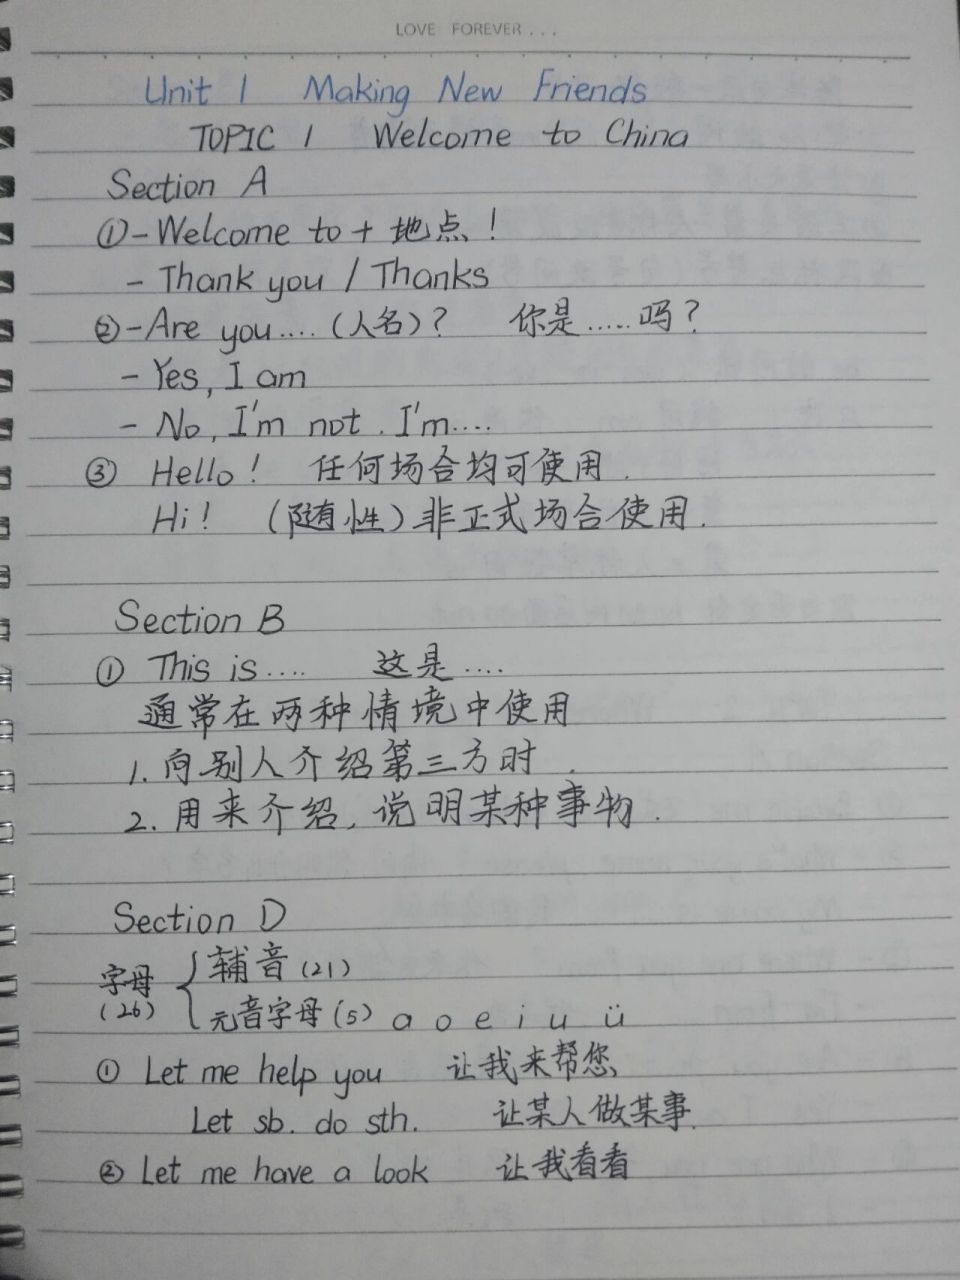 LOVE FOREVER...
Unit 1 Making New Friends
TOPIC 1 Welcome to China
Section A
①-Welcome to + 地点!
- Thank you / Thanks
②-Are you....(人名)? 你是.....吗?
- Yes, I am
- No, I'm not. I'm....
③ Hello! 任何场合均可使用.
Hi! (随性)非正式场合使用.
Section B
① This is.... 这是....
通常在两种情境中使用
1. 向别人介绍第三方时.
2. 用来介绍,说明某种事物.
Section D
字母 辅音(21)
(26) 元音字母(5) a o e i u ü
① Let me help you 让我来帮您
Let sb. do sth. 让某人做某事.
② Let me have a look 让我看看